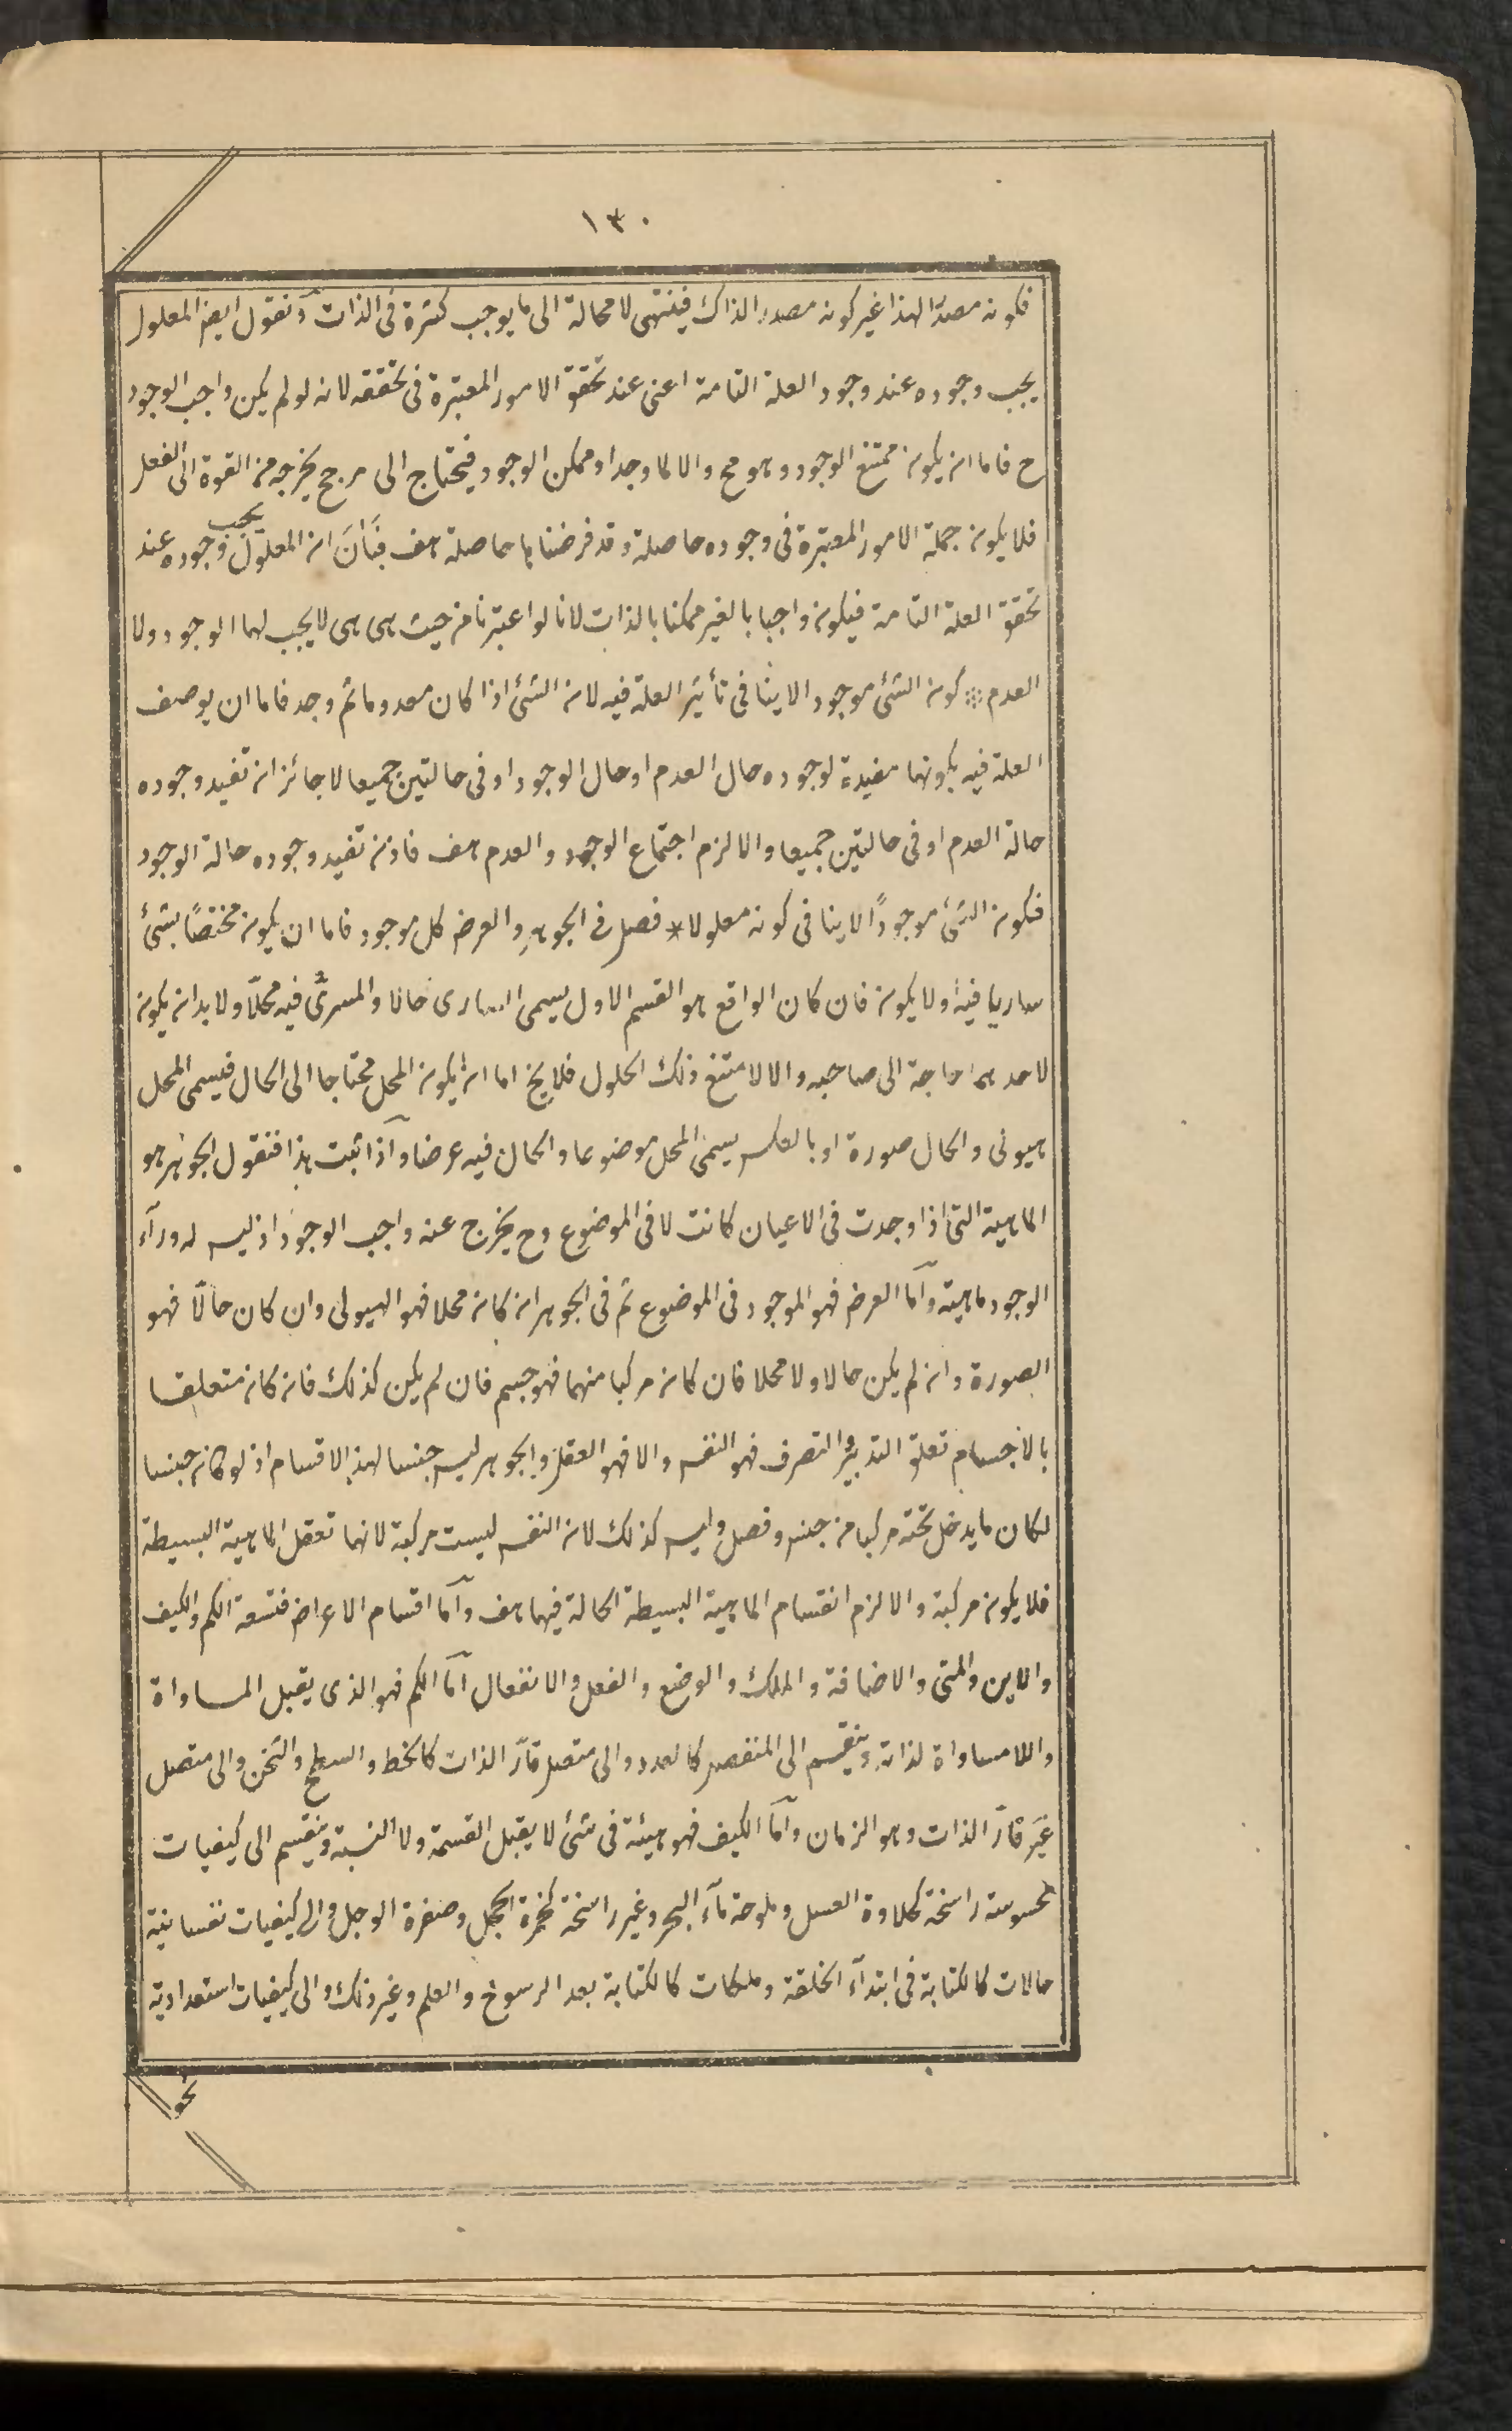 ١٣٠
فكونه مصدرا لهذا غير كونه مصدرا لذاك فينتهى لا محالة الى ما يوجب كثرة فى الذات ونقول ايض المعلول
يجب وجوده عند وجود العلة التامة اعنى عند تحقق الامور المعتبرة فى تحققه لانه لو لم يكن واجب الوجود
ح فاما ان يكون ممتنع الوجود وهو مح والا لما وجد او ممكن الوجود فيحتاج الى مرجح يخرجه من القوة الى الفعل
فلا يكون جملة الامور المعتبرة فى وجوده حاصلة وقد فرضناها حاصلة هف فبان ان المعلول يجب وجوده عند
تحقق العلة التامة فيكون واجبا بالغير ممكنا بالذات لانا لو اعتبرنا من حيث هى هى لا يجب لها الوجود ولا
العدم كون الشئ موجودا لا ينافى تأثير العلة فيه لان الشئ اذا كان معدوما ثم وجد فاما ان يوصف
العلة فيه بكونها مفيدة لوجوده حال العدم او حال الوجود او فى حالتين جميعا لا جائز ان تفيد وجوده
حالة العدم او فى حالتين جميعا والا لزم اجتماع الوجود والعدم هف فاذن تفيد وجوده حالة الوجود
فكون الشئ موجودًا لا ينافى كونه معلولا * فصل فى الجوهر والعرض كل موجود فاما ان يكون مختصًا بشئ
ساريا فيه اولا يكون فان كان الواقع هو القسم الاول يسمى السارى حالا والمسرى فيه محلًا ولا بد ان يكون
لاحدهما حاجة الى صاحبه والا لامتنع ذلك الحلول فلا يخ اما ان يكون المحل محتاجا الى الحال فيسمى المحل
هيولى والحال صورة او بالعكس يسمى المحل موضوعا والحال فيه عرضا واذا ثبت هذا فنقول الجوهر هو
الماهية التى اذا وجدت فى الاعيان كانت لا فى الموضوع وح يخرج عنه واجب الوجود اذ ليس له ورآء
الوجود ماهية واما العرض فهو الموجود فى الموضوع ثم فى الجوهر ان كان محلا فهو الهيولى وان كان حالًا فهو
الصورة وان لم يكن حالا ولا محلا فان كان مركبا منهما فهو جسم فان لم يكن كذلك فان كان متعلقا
بالاجسام تعلق التدبير والتصرف فهو النفس والا فهو العقل والجوهر ليس جنسا لهذه الاقسام اذ لو كان جنسا
لكان ما يدخل تحته مركبا من جنس وفصل وليس كذلك لان النفس ليست مركبة لانها تعقل الماهية البسيطة
فلا يكون مركبة والا لزم انقسام الماهية البسيطة الحالة فيها هف واما اقسام الاعراض فتسعة الكم والكيف
والاين والمتى والاضافة والملك والوضع والفعل والانفعال اما الكم فهو الذى يقبل المساواة
واللامساواة لذاته وينقسم الى المنفصل كالعدد والى متصل قارّ الذات كالخط والسطح والثخن والى متصل
غير قارّ الذات وهو الزمان واما الكيف فهو هيئة فى شئ لا يقبل القسمة ولا النسبة وينقسم الى كيفيات
محسوسة راسخة كحلاوة العسل وملوحة مآء البحر وغير راسخة كحمرة الخجل وصفرة الوجل والى كيفيات نفسانية
حالات كالكتابة فى ابتدآء الخلقة وملكات كالكتابة بعد الرسوخ والعلم وغير ذلك والى كيفيات استعدادية
نحو